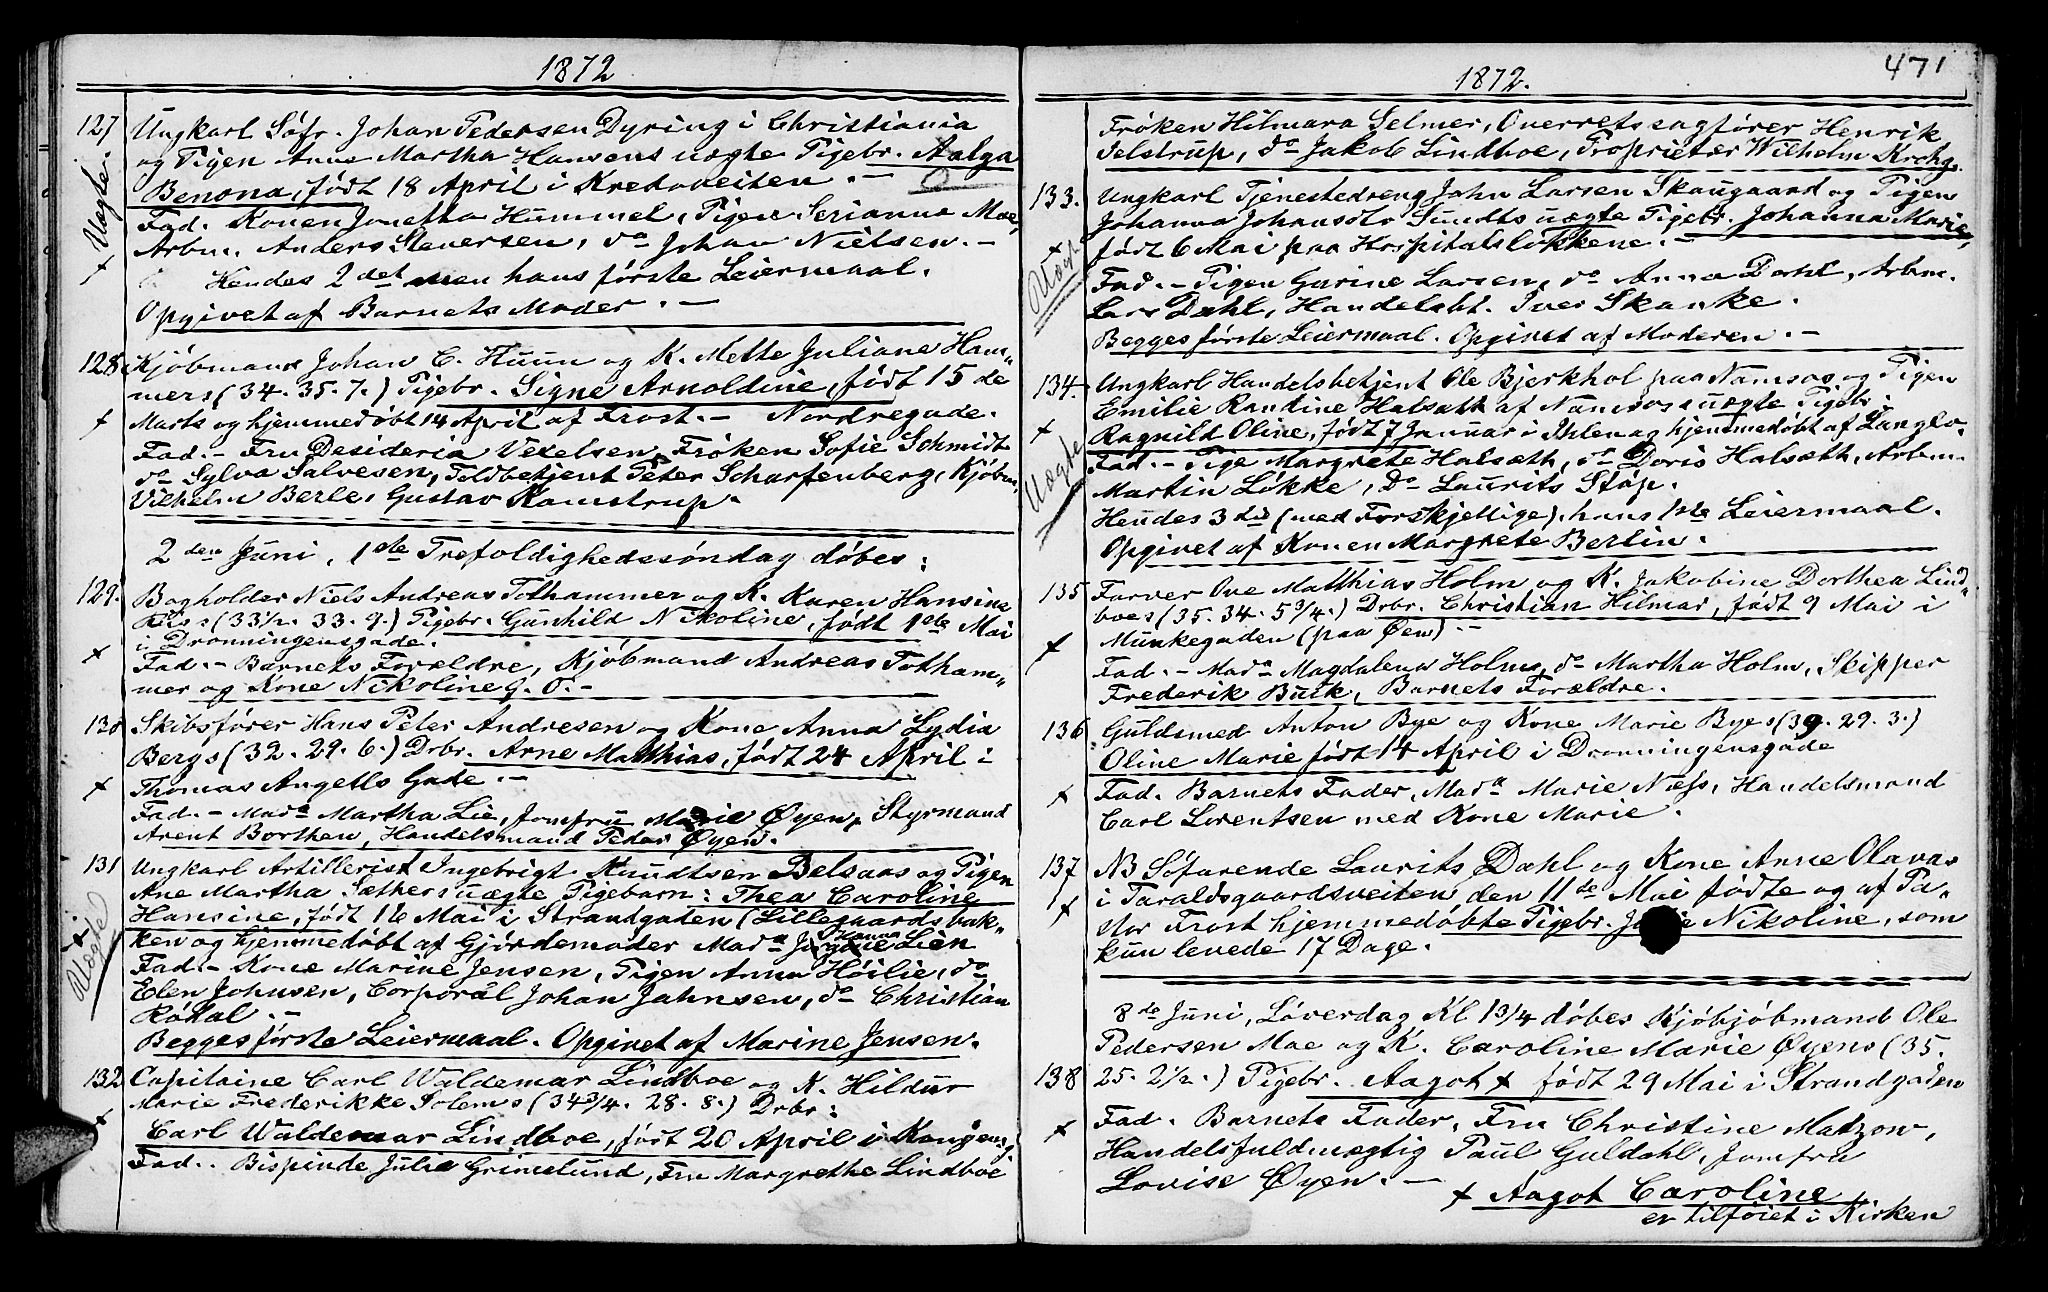 1872
127 Ungkarl Söfr. Johan Pedersen Dyring i Christiania
og Pigen Anne Martha Hansens uægte Pigebr. Aalga
Benona, født 18 April i Kredsveiten. —
Uægte.
Fad. Konen Jonetta Hummel, Pigen Serianna Moe,
Arbm. Anders Stenersen, do Johan Nielsen. —
Hendes 2det men hans förste Leiermaal.
Opgivet af Barnets Moder. —
128. Kjöbmand Johan C. Huun og K. Mette Juliane Ham„
mers (34. 35. 7.) Pigebr. Signe Arnoldine, født 15de
Marts og hjemmedöbt 14 April af Frost. — Nordregade.
Fad. — Fru Desideria Vexelsen, Fröken Sofie Schmidt
do Sylva Salvesen, Toldbetjent Peter Scharfenberg, Kjöbm.
Vilhelm Berle, Gustav Kamstrup.
2den Juni, 1ste Trefoldighedssöndag döbes:
129. Bogholder Niels Andreas Tothammer og K. Karen Hansine
(33½. 33. 9.) Pigebr. Gunhild Nikoline, født 1ste Mai
i Dronningensgade.
Fad. — Barnets Forældre, Kjöbmand Andreas Totham„
mer og Kone Nikoline G. O. —
130 Skibsförer Hans Peter Andresen og Kone Anna Lydia
Bergs (32. 29. 6.) Drbr. Arne Matthias, födt 24 April i
Thomas Angells Gade. —
Fad. — Mada Martha Lie, Jomfru Marie Øyen, Styrmand
Arent Borthen, Handelsmand Peder Øyen.
131 Ungkarl Artillerist Ingebrigt Knudtsen Belsaas og Pigen
Ane Martha Sæthers uægte Pigebarn: Thea Caroline
Hansine, født 16 Mai i Strandgaden (Lillegaardsbak„
Uægte
ken og hjemmedöbt af Gjordemoder Mada Hanna Lien
Fad. — Kone Marine Jensen, Pigen Anna Höilie, do
Elen Johnsen, Corporal Johan Jahnsen, do Christian
Rökal. —
Begges förste Leiermaal. Opgivet af Marine Jensen.
132 Capitaine Carl Waldemar Lindboe og K. Hildur
Marie Frederikke Solems (34¾. 28. 8.) Drbr:
Carl Waldemar Lindboe, født 20 April i Kongensg.
Fad.. Bispinde Julie Grimelund, Fru Margrethe Lindboe
471
1872.
Fröken Hilmara Selmer, Overretssagförer Henrik
Jelstrup, do Jakob Lindboe, Proprietær Wilhelm Krohg.
133. Ungkarl Tjenestedreng John Larsen Skaugaard og Pigen
Johanna Johansdtr Sundts uægte Pigebr. Johanna Marie,
födt 6 Mai paa Hospitalslökkene. —
Uægte
Fad. — Pigen Gurine Larsen, do Anna Dahl, Arbm.
Lars Dahl, Handelsbt. Iver Skanke.
Begges förste Leiermaal. Opgivet af Moderen. —
134. Ungkarl Handelsbetjent Ole Bjerkhol paa Namsos og Pigen
Emilie Randine Halsæth af Namsos uægte Pigebr:
Ragnild Oline, født 7 Januar i Ihlen og hjemmedöbt af Langlo.
Fad. — Pige Margrete Halsæth, do Doris Halsæth, Arbm.
Uægte
Martin Lökke, do Laurits Stöp.
Hendes 3die (med Forskjellige). hans 1ste Leiermaal.
Opgivet af Konen Margrete Berlin.
135 Farver Ove Matthias Holm og K. Jakobine Dorthea Lind„
boes (35. 34. 5¾.) Drbr. Christian Hilmar, født 9 Mai i
Munkegaden (paa Øen). —
Fad. — Mada Magdalena Holm, do Martha Holm, Skipper
Frederik Buck, Barnets Forældre.
136. Guldsmed Anton Bye og Kone Marie Byes (39. 29. 3.)
Oline Marie født 14 April i Dronningensgade
Fad. Barnets Fader, Mada Marie Næss, Handelsmand
Carl Lorentsen med Kone Marie.
137 NB Söfarende Laurits Dahl og Kone Anne Olavas
i Taraldsgaardsveiten, den 11te Mai födte og af Pa„
stor Frost hjemmedöbte Pigebr. Nikoline, som
kun levede 17 Dage.
8de Juni, Löverdag Kl 1¾ döbes Kjöbjöbmand Ole
Pedersen Moe og K. Caroline Marie Øyens (35.
138 25. 2½.) Pigebr. Aagot + født 29 Mai i Strandgaden
Fad. Barnets Fader, Fru Christine Matzow,
Handelsfuldmægtig Paul Guldahl, Jomfru
Lovise Øyen. —
+ Aagot Caroline
er tilföiet i Kirken